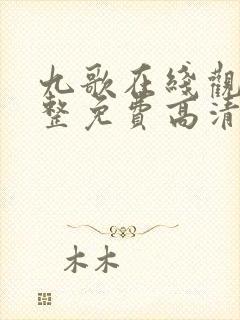 九歌在綫觀
整免費高清
木木